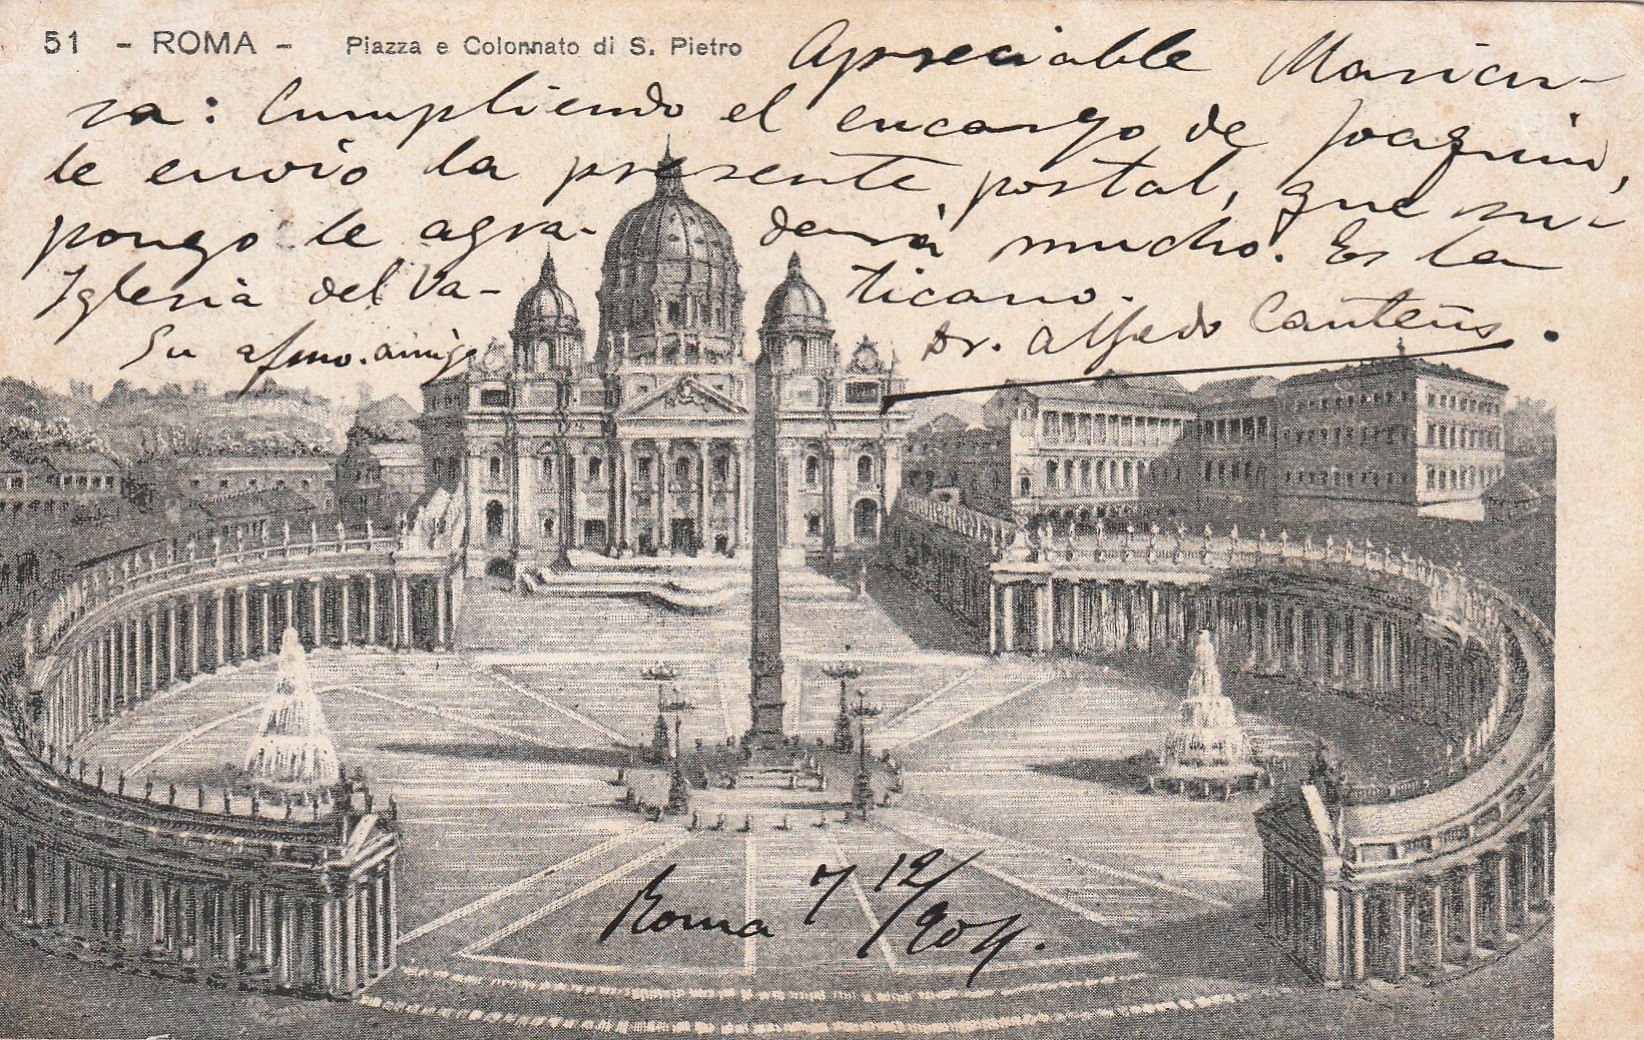 51 - ROMA - Piazza e Colonnato di S. Pietro
Apreciable Maricu-
sa: Cumpliendo el encargo de Joaquin,
le envio la presente postal, que su-
pongo le agra- dará mucho. Es la
Iglesia del Va- ticano.
Su afmo. amigo
Dr. Alfredo
Roma 7 12/904.